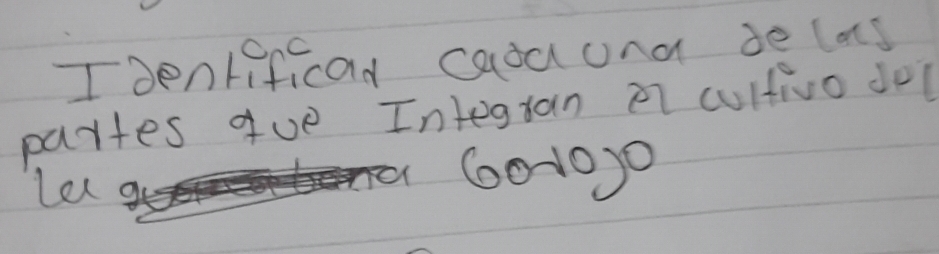 Identifican cada una de las
partes que Integran el cultivo del
la Gorgojo